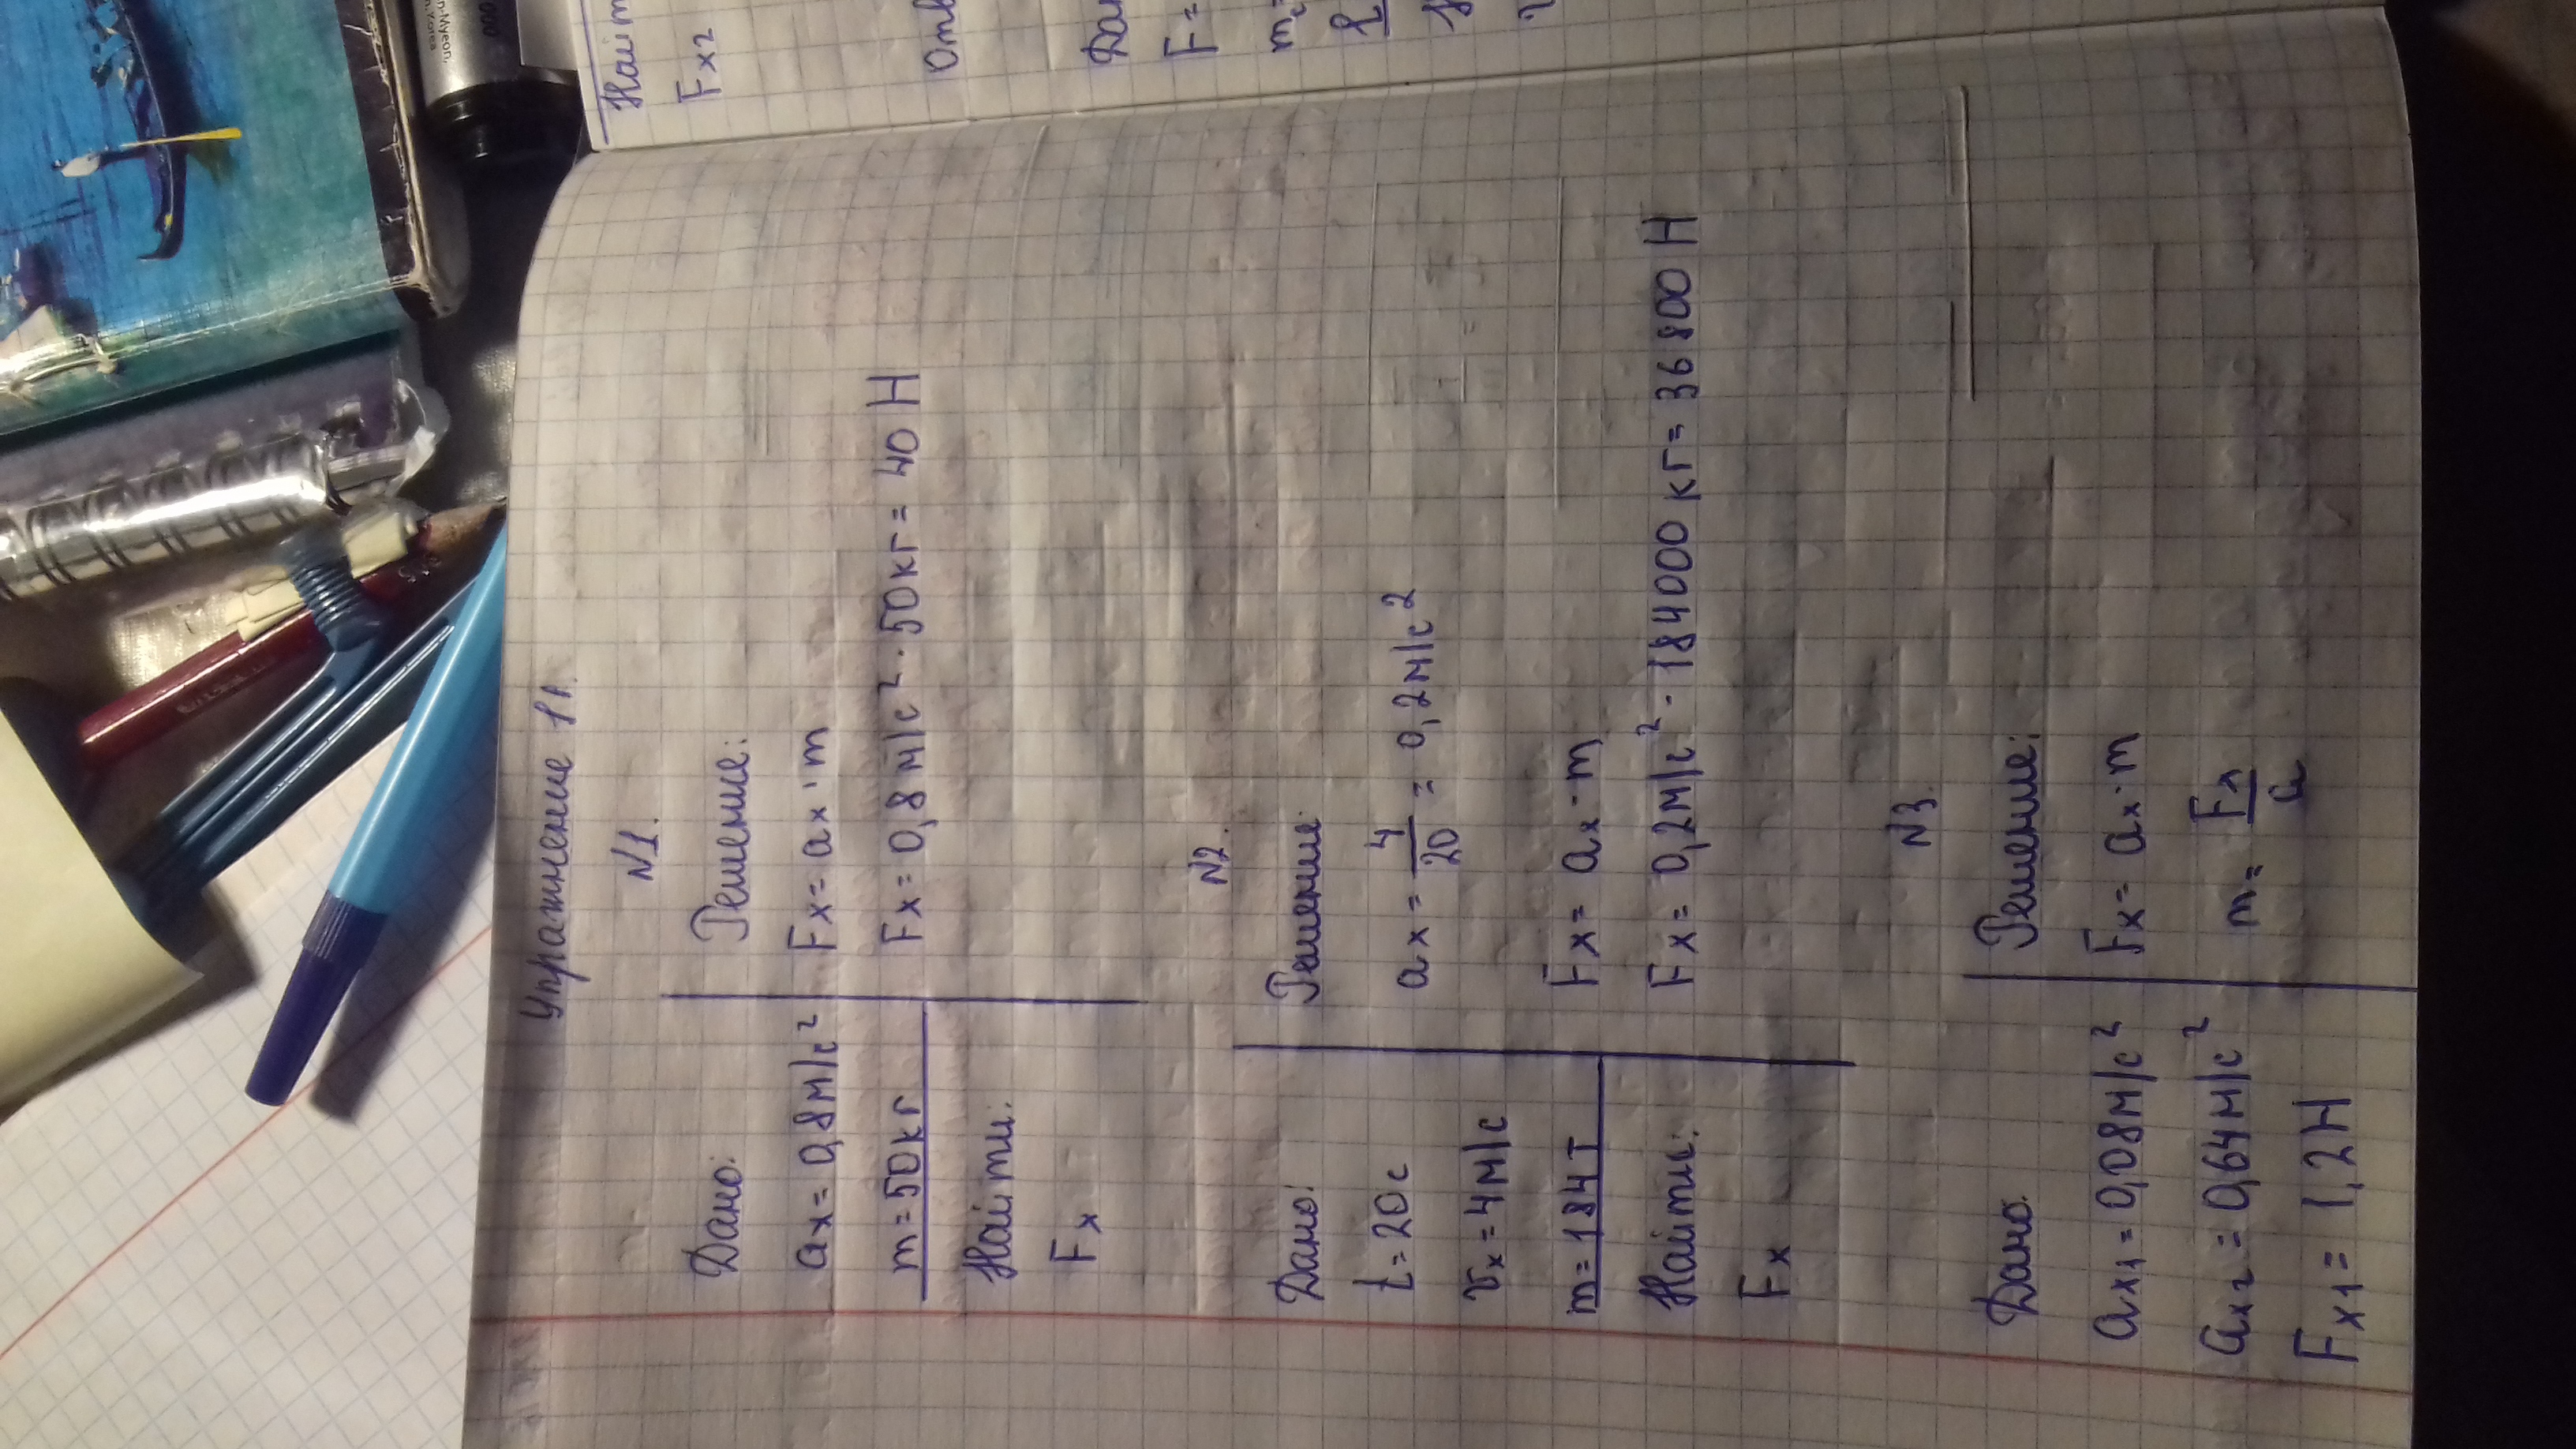 Упражнение 11.
N1.
Дано:
ax = 0,8 м/с²
m = 50кг
Найти:
Fx
Решение:
Fx = ax · m
Fx = 0,8 м/с² · 50кг = 40 Н
N2.
Дано:
t = 20с
vx = 4м/с
m = 184т
Найти:
Fx
Решение:
ax = 4/20 = 0,2м/с²
Fx = ax · m
Fx = 0,2м/с² · 184000 кг = 36800 Н
N3.
Дано:
ax1 = 0,08м/с²
ax2 = 0,64м/с²
Fx1 = 1,2Н
Решение:
Fx = ax · m
m = Fx/a
Fx2
F =